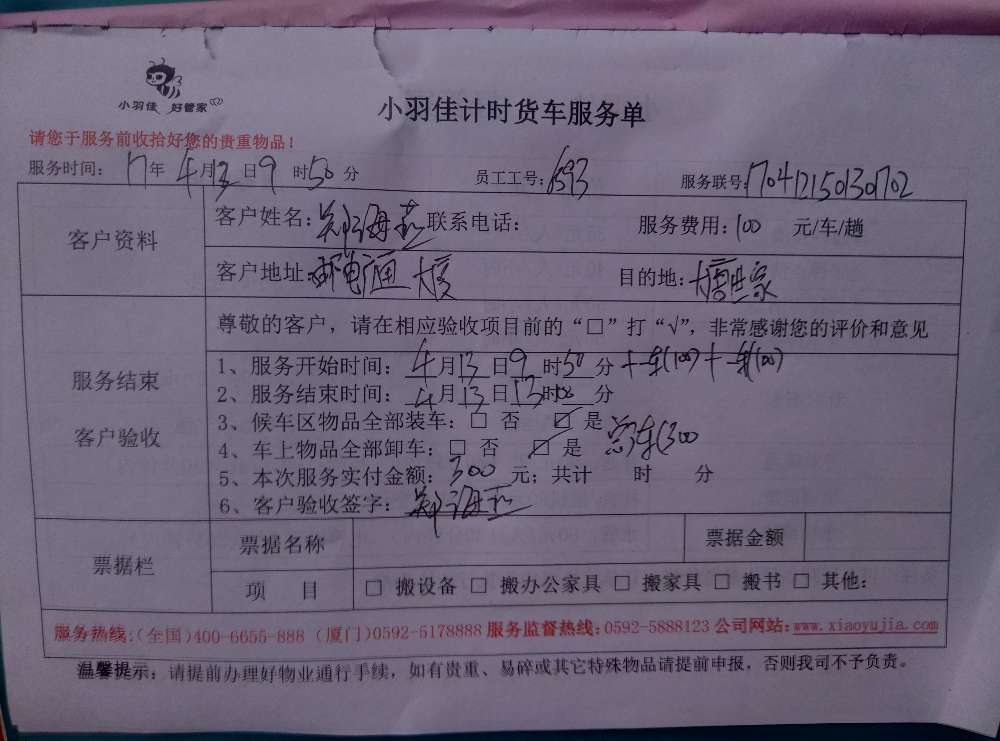 小羽佳 好管家
小羽佳计时货车服务单
请您于服务前收拾好您的贵重物品！
服务时间： 17年 4月13日9时50分 员工工号：1593 服务联号：170412150130702
客户资料
客户姓名：郑海燕 联系电话： 服务费用：100 元/车/趟
客户地址：邮电通大楼 目的地：唐世家
服务结束
客户验收
尊敬的客户，请在相应验收项目前的“□”打“√”，非常感谢您的评价和意见
1、服务开始时间：4月13日9时50分 +一车(100)+一车(100)
2、服务结束时间：4月13日13时08分
3、候车区物品全部装车：□ 否 ☑ 是
4、车上物品全部卸车：□ 否 ☑ 是
5、本次服务实付金额：300 元；共计 时 分
6、客户验收签字：郑海燕
票据栏
票据名称 票据金额
项 目 □ 搬设备 □ 搬办公家具 □ 搬家具 □ 搬书 □ 其他：
服务热线：(全国)400-6655-888 (厦门)0592-5178888 服务监督热线：0592-5888123 公司网站：www.xiaoyujia.com
温馨提示：请提前办理好物业通行手续，如有贵重、易碎或其它特殊物品请提前申报，否则我司不予负责。